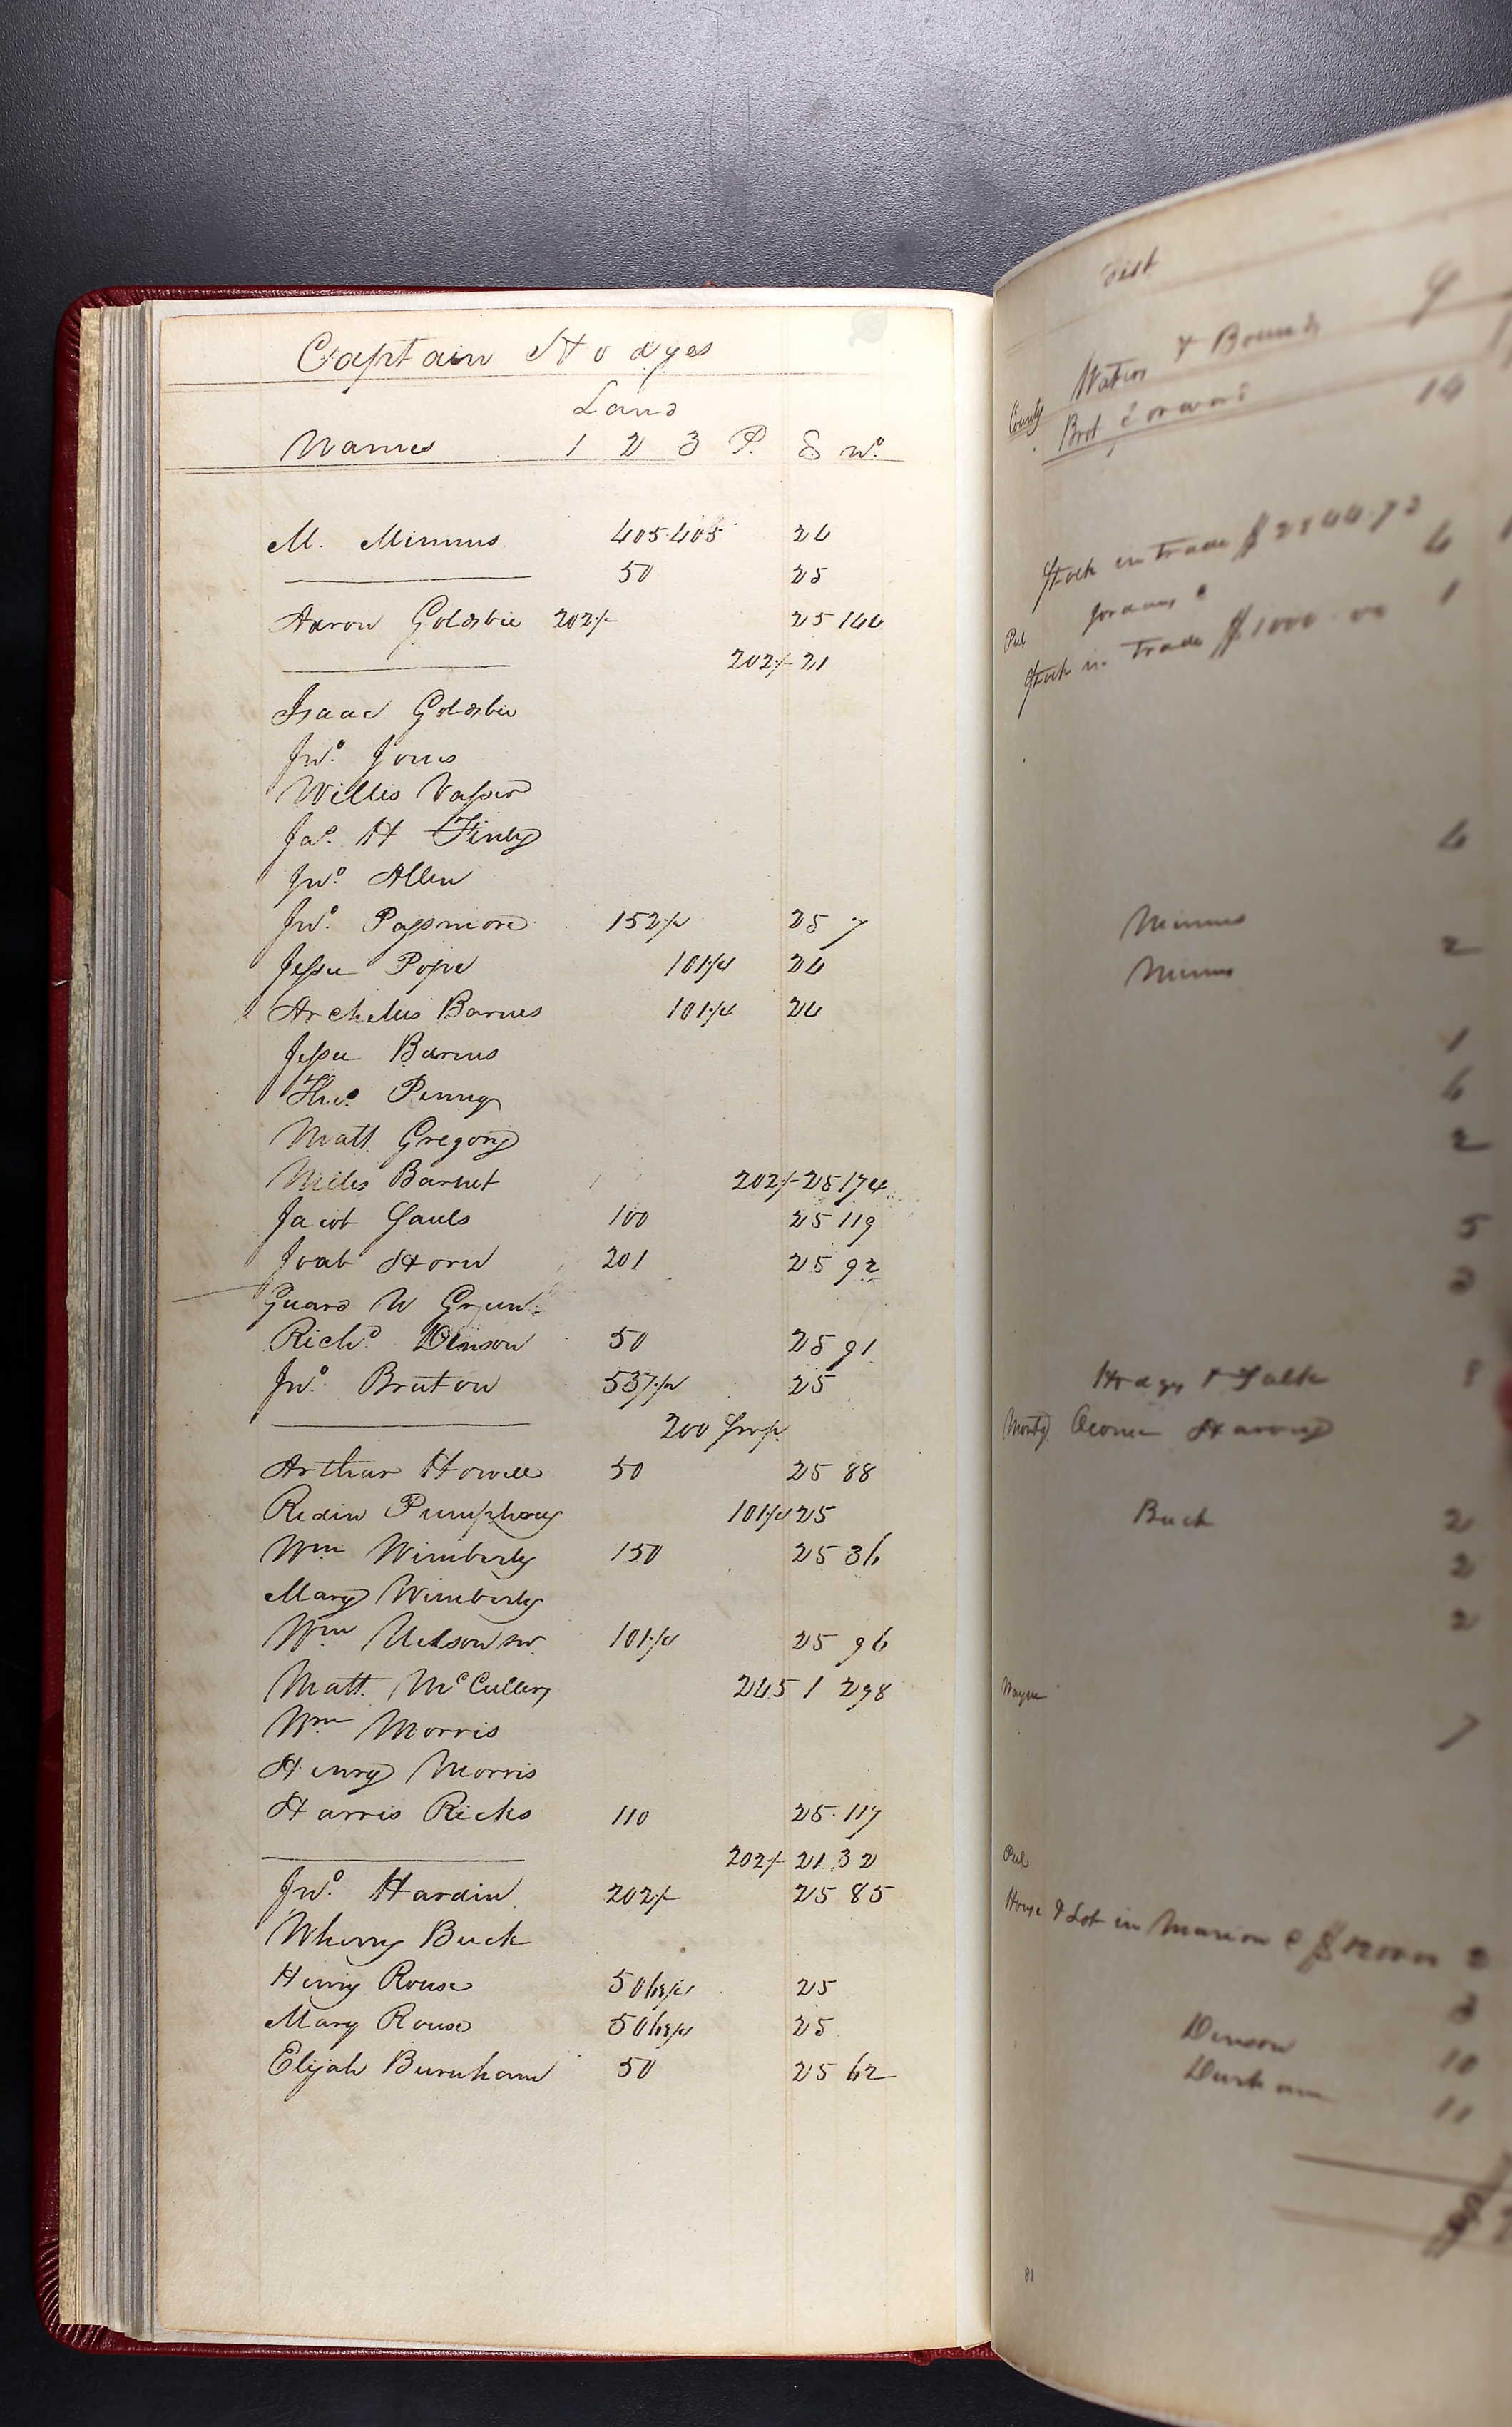 Captain Hodges
Land
Names 1 2 3 P. S No.
M. Mimms 405 405 24
50 25
Aaron Goldsbie 202½ 25 144
202½ 21
Isaac Goldsbie
Jno. Jones
Willis Vasser
Jas. H Finly
Jno. Allen
Jno. Passmore 152½ 25 7
Jesse Pope 101¼ 24
Archelus Barnes 101¼ 24
Jesse Barnes
Thos. Penny
Matt. Gregory
Miles Barnet 202½ 25 174
Jacob Gauls 100 25 119
Joab Horn 201 25 92
Guard W Green
Richd. Dinson 50 25 91
Jno. Bruton 537½ 25
200 Prop.
Arthur Howell 50 25 88
Redin Pumphrey 101¼ 25
Wm Wimberly 150 25 36
Mary Wimberly
Wm Nelson sr. 101¼ 25 96
Matt. McCullers 245 1 298
Wm Morris
Henry Morris
Harris Ricks 110 25 117
202½ 21 32
Jno. Hardin 202½ 25 85
Wherry Buck
Henry Rouse 50 25
Mary Rouse 50 25
Elijah Burnham 50 25 62
Dist
County Waters & Bounds
Brot forward 14
Stock in Trade $2844.73 4
Jordans C
Pul
Stock in Trade $1000.00 1
4
Mimms
2
Mimms
1
6
2
5
2
Hodges & Falk 8
Montg. Oconee
Buck 2
2
2
Wayne
7
Pul
House & Lot in Marion 2
3
Dinson 10
Durham 11
81